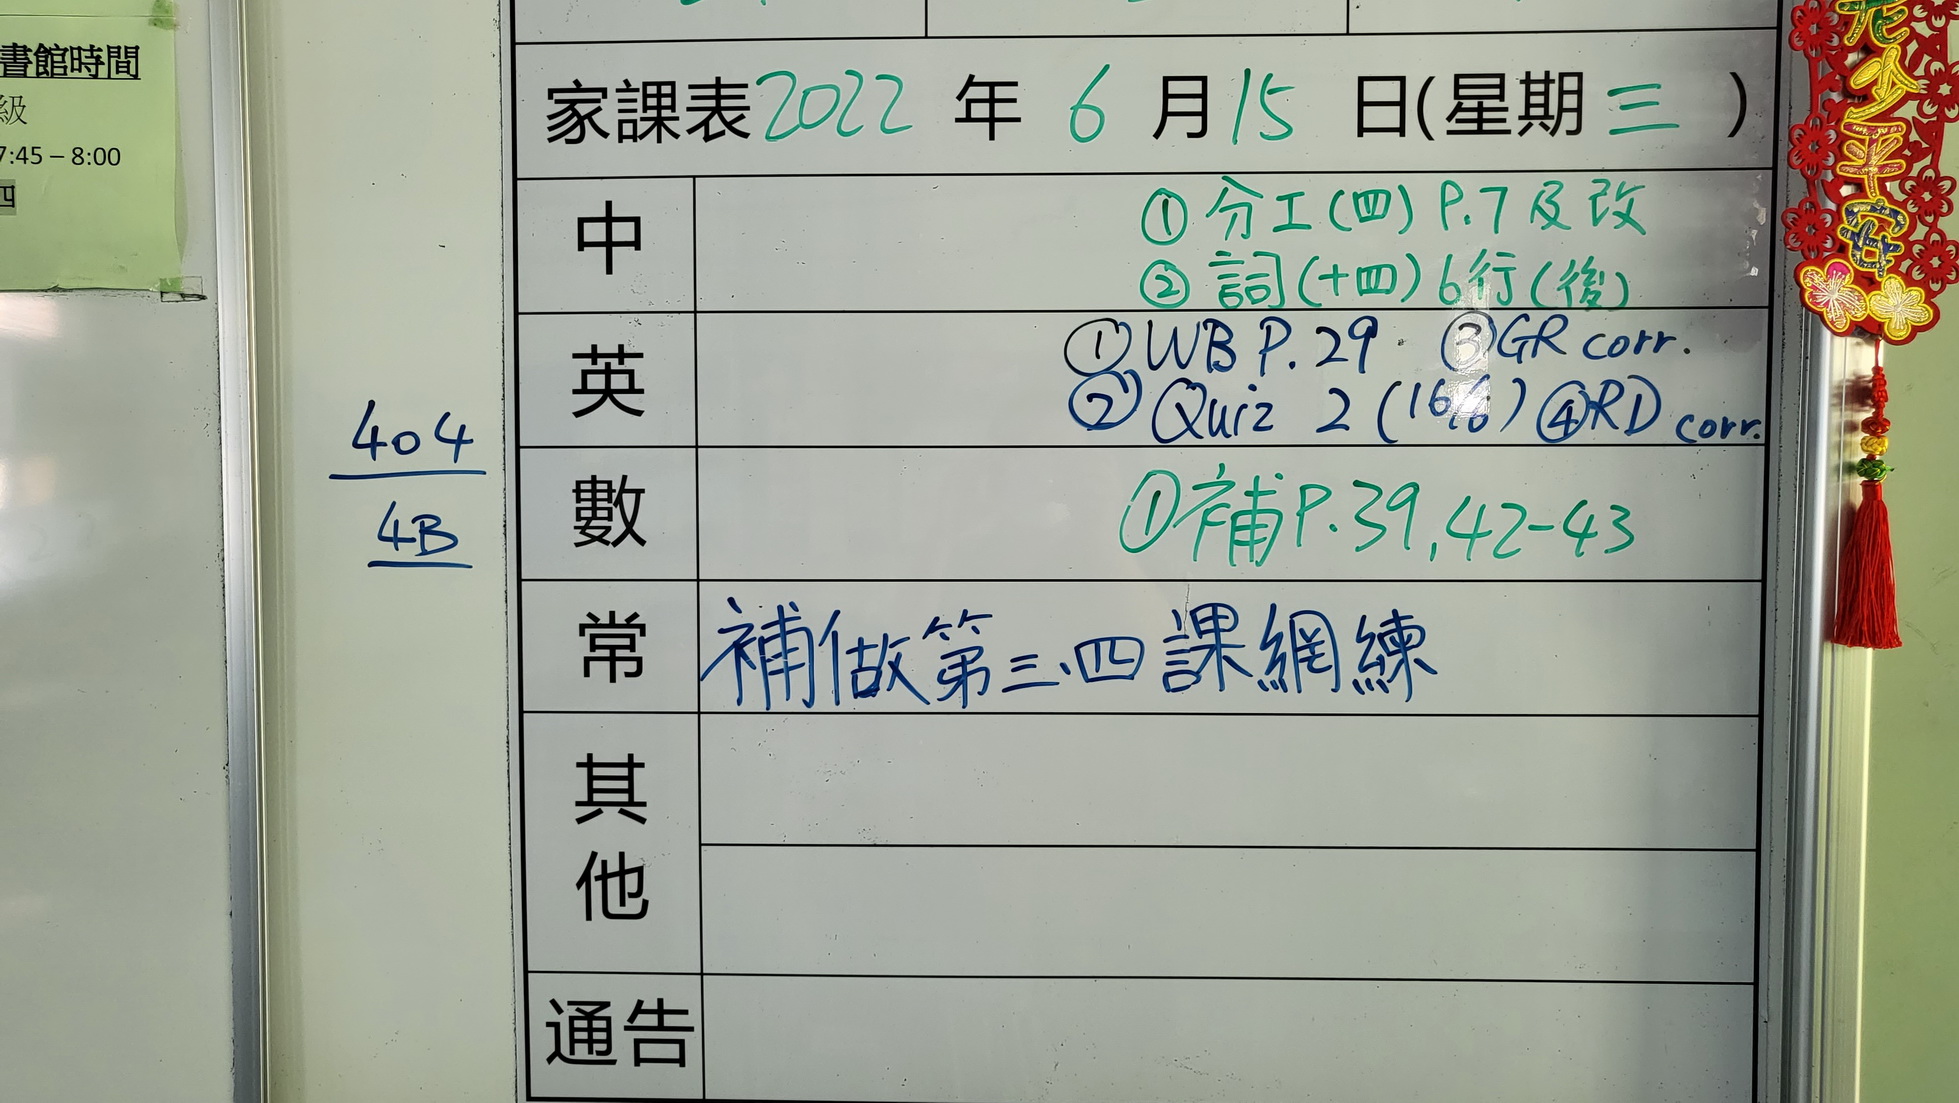 書館時間
級
7:45 – 8:00
四
404
4B
家課表2022 年 6 月 15 日(星期三)
中
①分工(四) P.7及改
②詞(十四) 6行(後)
英
①WB P.29 ③GR corr.
②Quiz 2 (16/6) ④RD corr.
數
①補P.39,42-43
常
補做第三、四課網練
其他
通告
老少平安